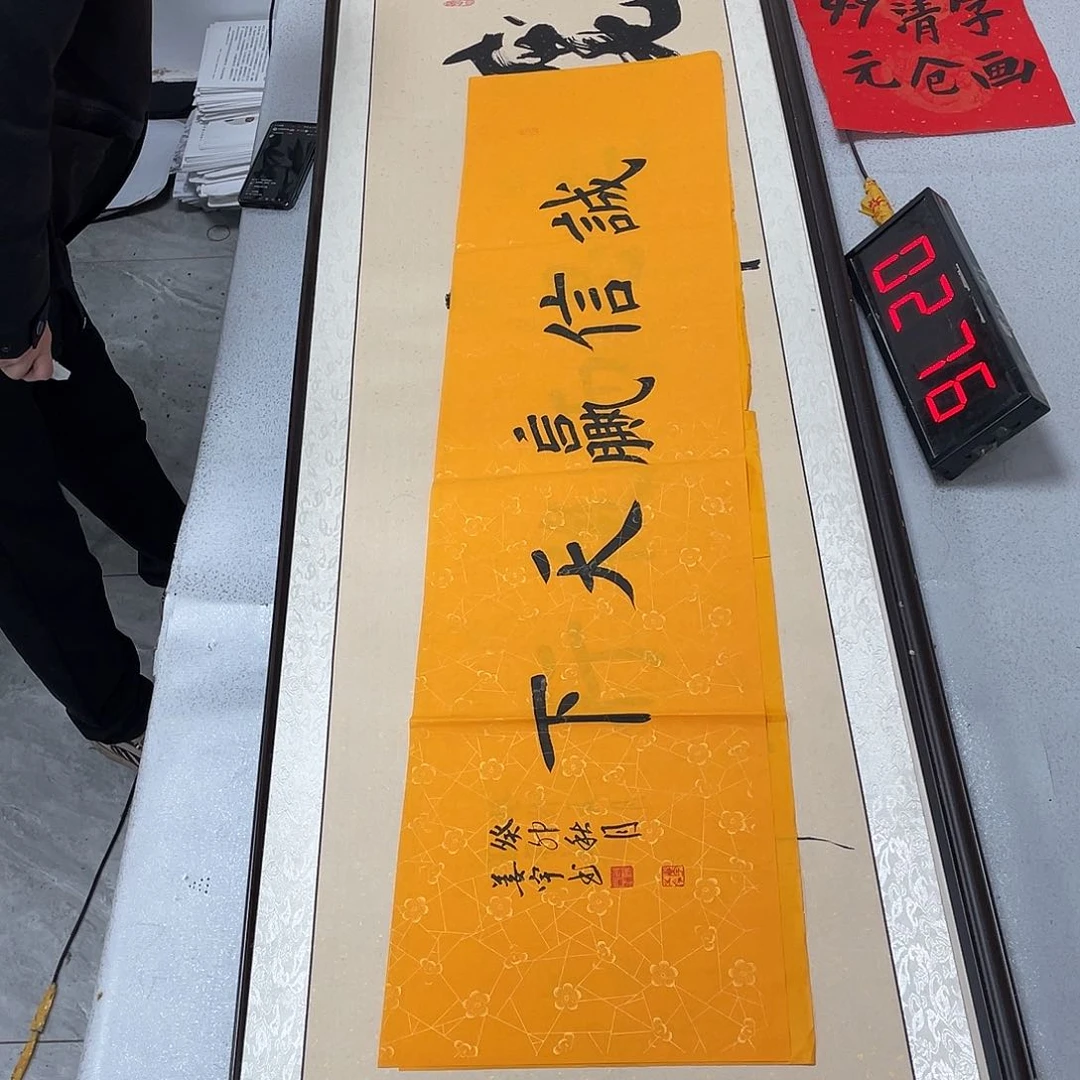 誠信贏天下
癸卯秋月
姜宇书
字画
清仓
元
0276